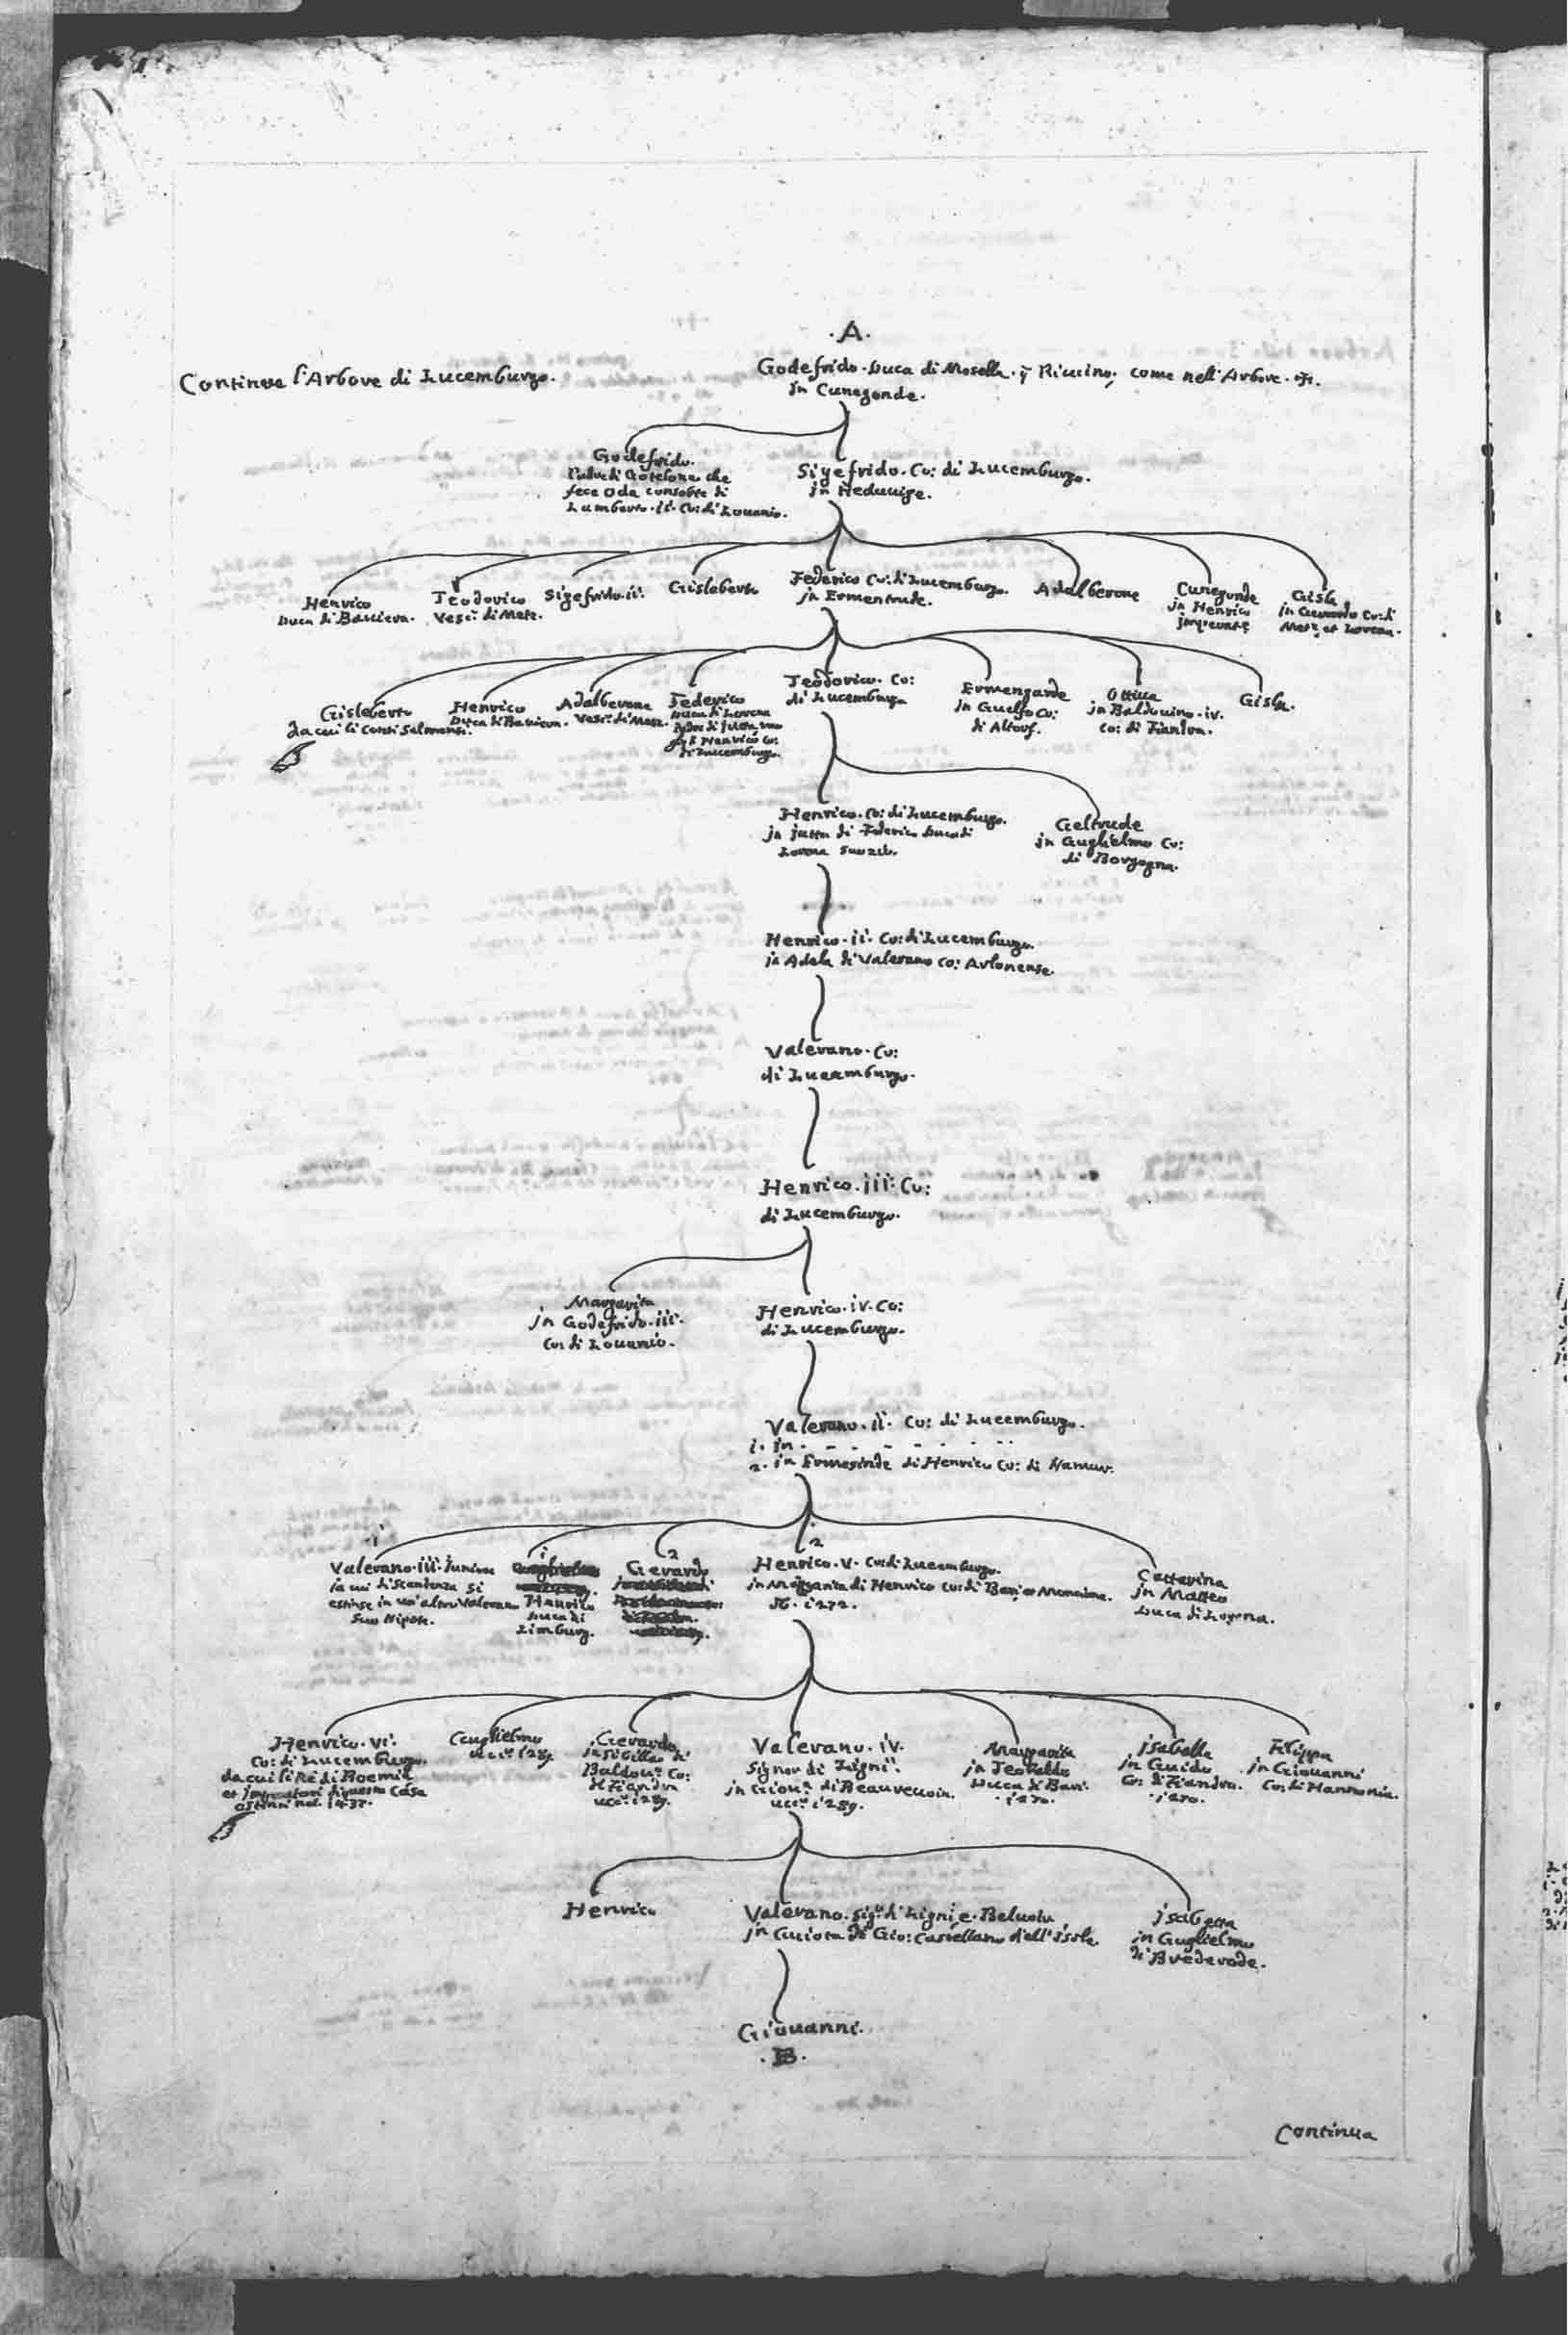 .A.
Continua l'Arbore di Lucemburgo.
Godefrido. Duca di Mosella. ỹ Ricuino, come nell'Arbore.
in Cunegonde.
Godefrido.
Padre di Gotelone che
fece Oda consorte di
Lamberto. ii. Co: di Lovanio.
Sigefrido. Co: di Lucemburgo.
in Heduuige.
Henrico
Duca di Baviera.
Teodorico
Vesc: di Metz.
Sigefrido. ii.
Gisleberto
Federico Co: di Lucemburgo.
in Ermentrude.
Adalberone
Cunegonde
in Henrico
Imperatore
Gisla
in Gerardo Co: di
Metz et Loren.
Gisleberto
da cui li Conti Salmensi.
Henrico
Duca di Baviera.
Adalberone
Vesc: di Metz.
Federico
Duca di Lorena
Padre di Jutta
Henrico Co:
di Lucemburgo.
Teodorico. Co:
di Lucemburgo
Ermengarde
in Guelfo Co:
di Altorf.
Ottiva
in Balduino. iv.
Co: di Fiandra.
Gisla.
Henrico. Co: di Lucemburgo.
in Jutta di Federico Duca di
Lorena suo zio.
Geltrude
in Guglielmo Co:
di Borgogna.
Henrico. ii. Co: di Lucemburgo.
in Adela di Valerano Co: Arlonense.
Valerano. Co:
di Lucemburgo.
Henrico. iii. Co:
di Lucemburgo.
Margarita
in Godefrido. iii.
Co: di Lovanio.
Henrico. iv. Co:
di Lucemburgo.
Valerano. ii. Co: di Lucemburgo.
1. in . . . . . . .
2. in Ermesinde di Henrico Co: di Namur.
1
Valerano. iii. Juniore
la cui discendenza si
estinse in un'altro Valerano
suo Nipote.
1
Henrico
Duca di
Limburg.
2
Gerardo
2
Henrico. V. Co: di Lucemburgo.
in Margarita di Henrico Co: di Bari
1272.
Catterina
in Matteo
Duca di Lorena.
Henrico. vi.
Co: di Lucemburgo.
da cui li Rè di Boemia
et Imperatori di questa Casa
estinti nel 1437.
Guglielmo
ucc: 1289.
Gerardo
in Sibilla di
Baldou: Co:
di Fiandra
ucc: 1289.
Valerano. iv.
Signor di Ligni.
in Giou: di Beaurevoir.
ucc: 1289.
Margarita
in Teobaldo
Duca di Bari.
1270.
Isabella
in Guido
Co: di Fiandra.
1270.
Filippa
in Giovanni
Co: di Hannonia.
Henrico
Valerano. Sig: di Ligni e. Beluoir
in Guiota di Gio: Castellano dell'Isola.
Isabetta
in Guglielmo
di Brederode.
Giouanni.
.B.
Continua